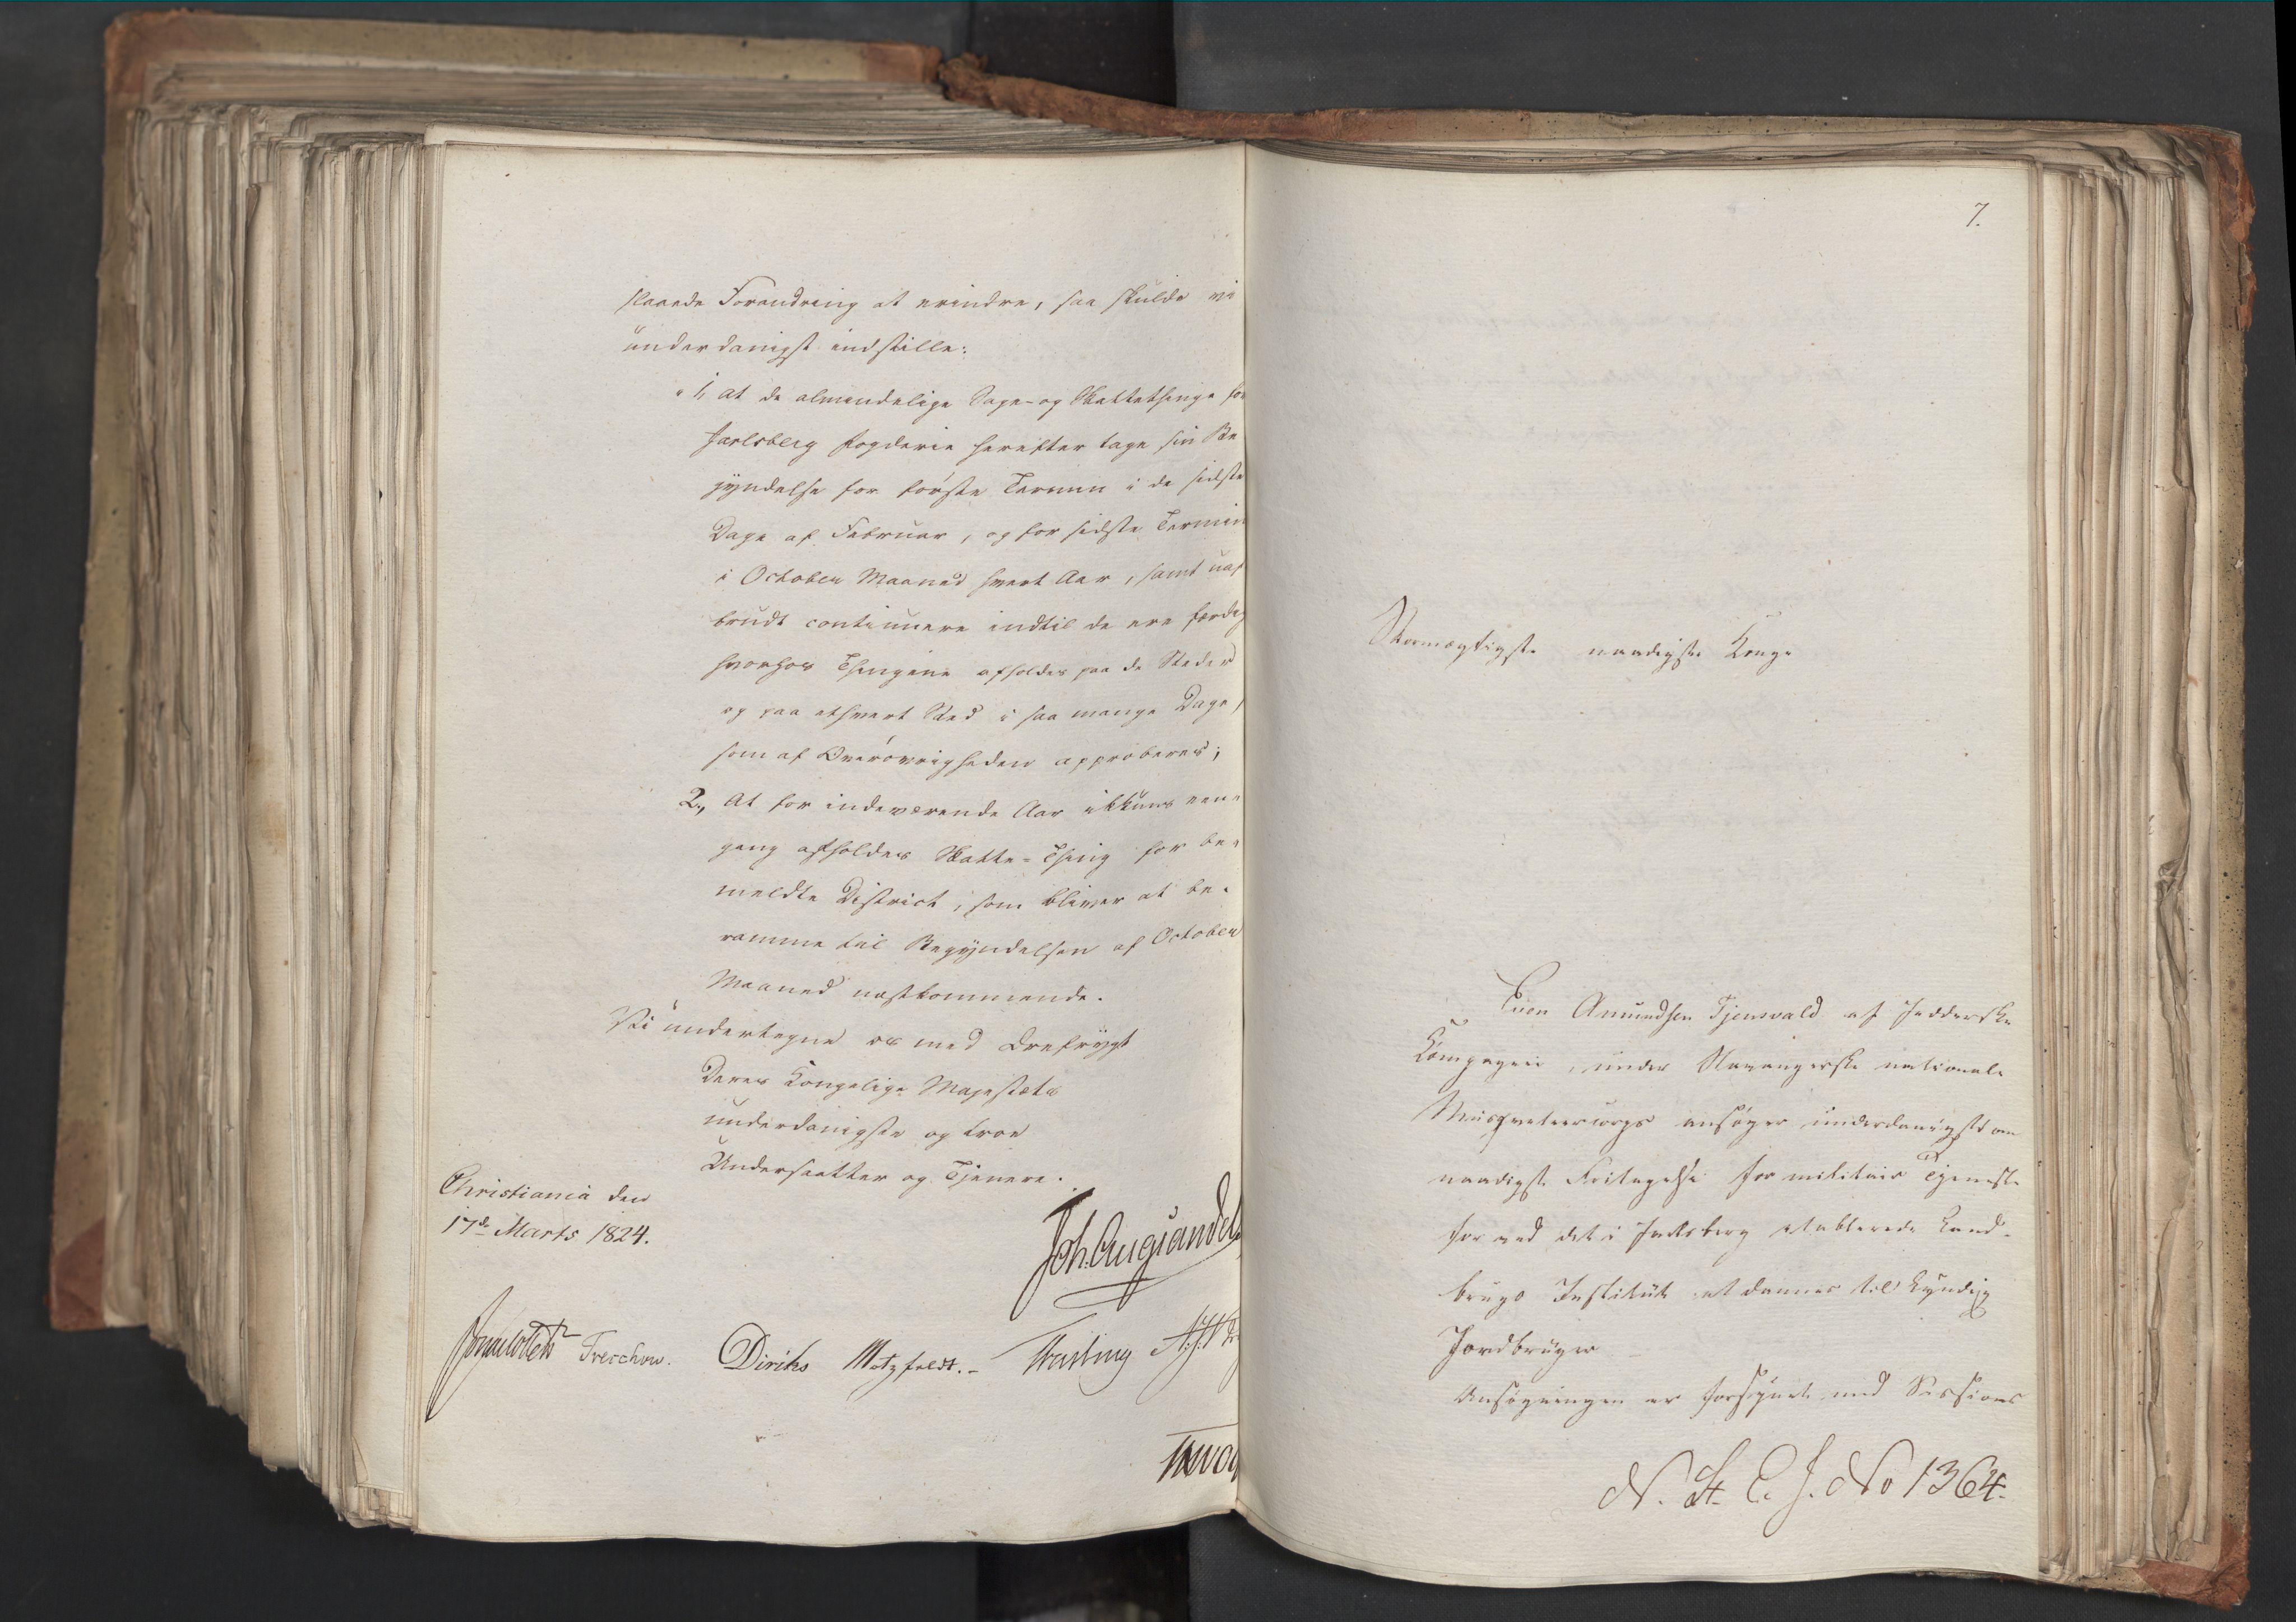 slaaede Forandring at erindre, saa skulde vi
underdanigst indstille:
"1, at de almindelige Sage- og Skattethinge for
Jarlsberg Fogderie herefter tage sin Be
gyndelse for første Termin i de sidste
Dage af Februar, og for sidste Termin
i October Maaned hvert Aar, samt uaf
brudt continuere indtil de ere færdig
hvorhos Thingene afholdes paa de Steder
og paa ethvert Sted i saa mange Dage,
som af Overøvrigheden approberes;
2., At for indeværende Aar ikkuns een
gang afholdes Skatte-Thing for be-
meldte District, som bliver at be-
ramme til Begyndelsen af October
Maaned næstkommende.
Vi undertegne os med Ærefrygt
Deres Kongelige Majestæts
underdanigste og troe
Undersaatter og Tjenere.
Christiania den
17de Marts 1824.
Joh. Aug. Sandel
Treschow. Diriks Motzfeldt.-
7.
Stormægtigste naadigste Konge
Amundsen Tjensvold af Jedderske
Kompagni, under Stavangerske nationale
Musqueteercorps ansøger underdanigst om
naadigst Fritagelse for militair Tjeneste
for ved det i Jarlsberg etablerede Land-
brugs Institut at dannes til kyndig
Jordbruger
Ansøgningen er forsynet med Sessions
N. St. C. J. No 1364.